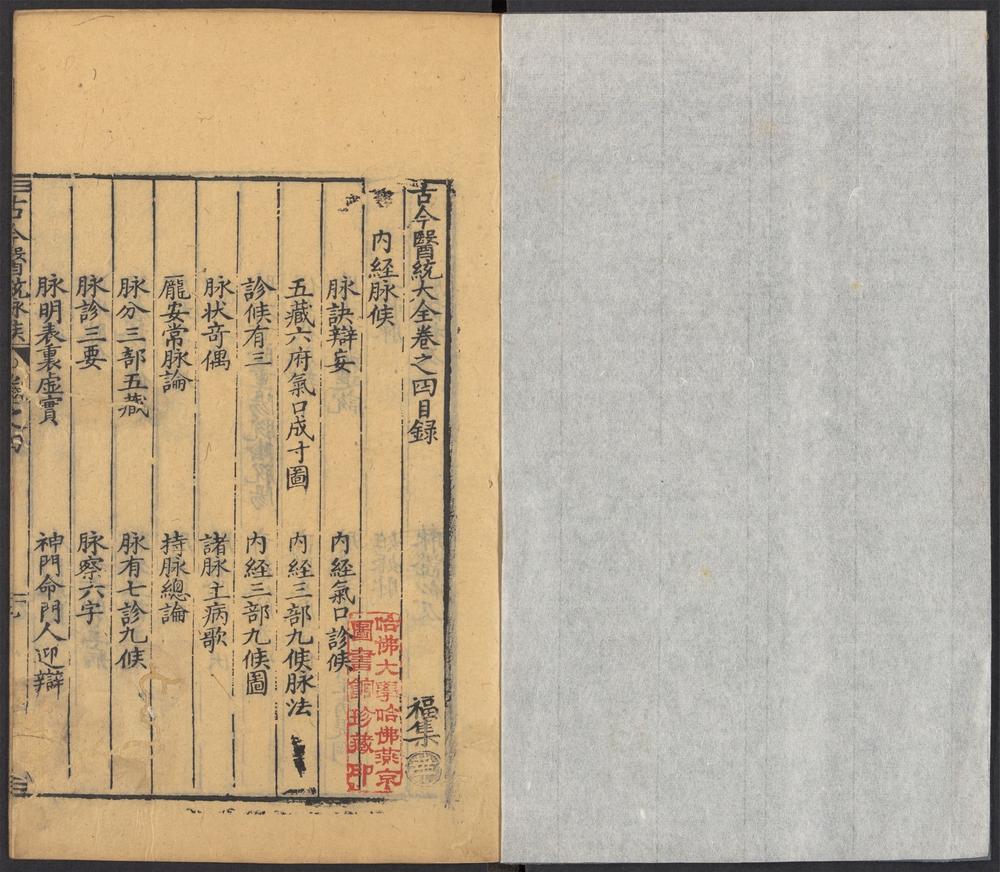 古今醫統大全卷之四目録 福集
内経脉候
脉訣辯妄 内経氣口診候
五藏六府氣口成寸圖 内经三部九候脉法
診候有三 内经三部九候圖
脉状竒偶 諸脉主病歌
龐安常脉論 持脉總論
脉分三部五藏 脉有七診九候
脉診三要 脉察六字
脉明表裏虚實 神門命門人迎辯
古今醫統脉候
哈佛大學哈佛燕京
圖書館珍藏印